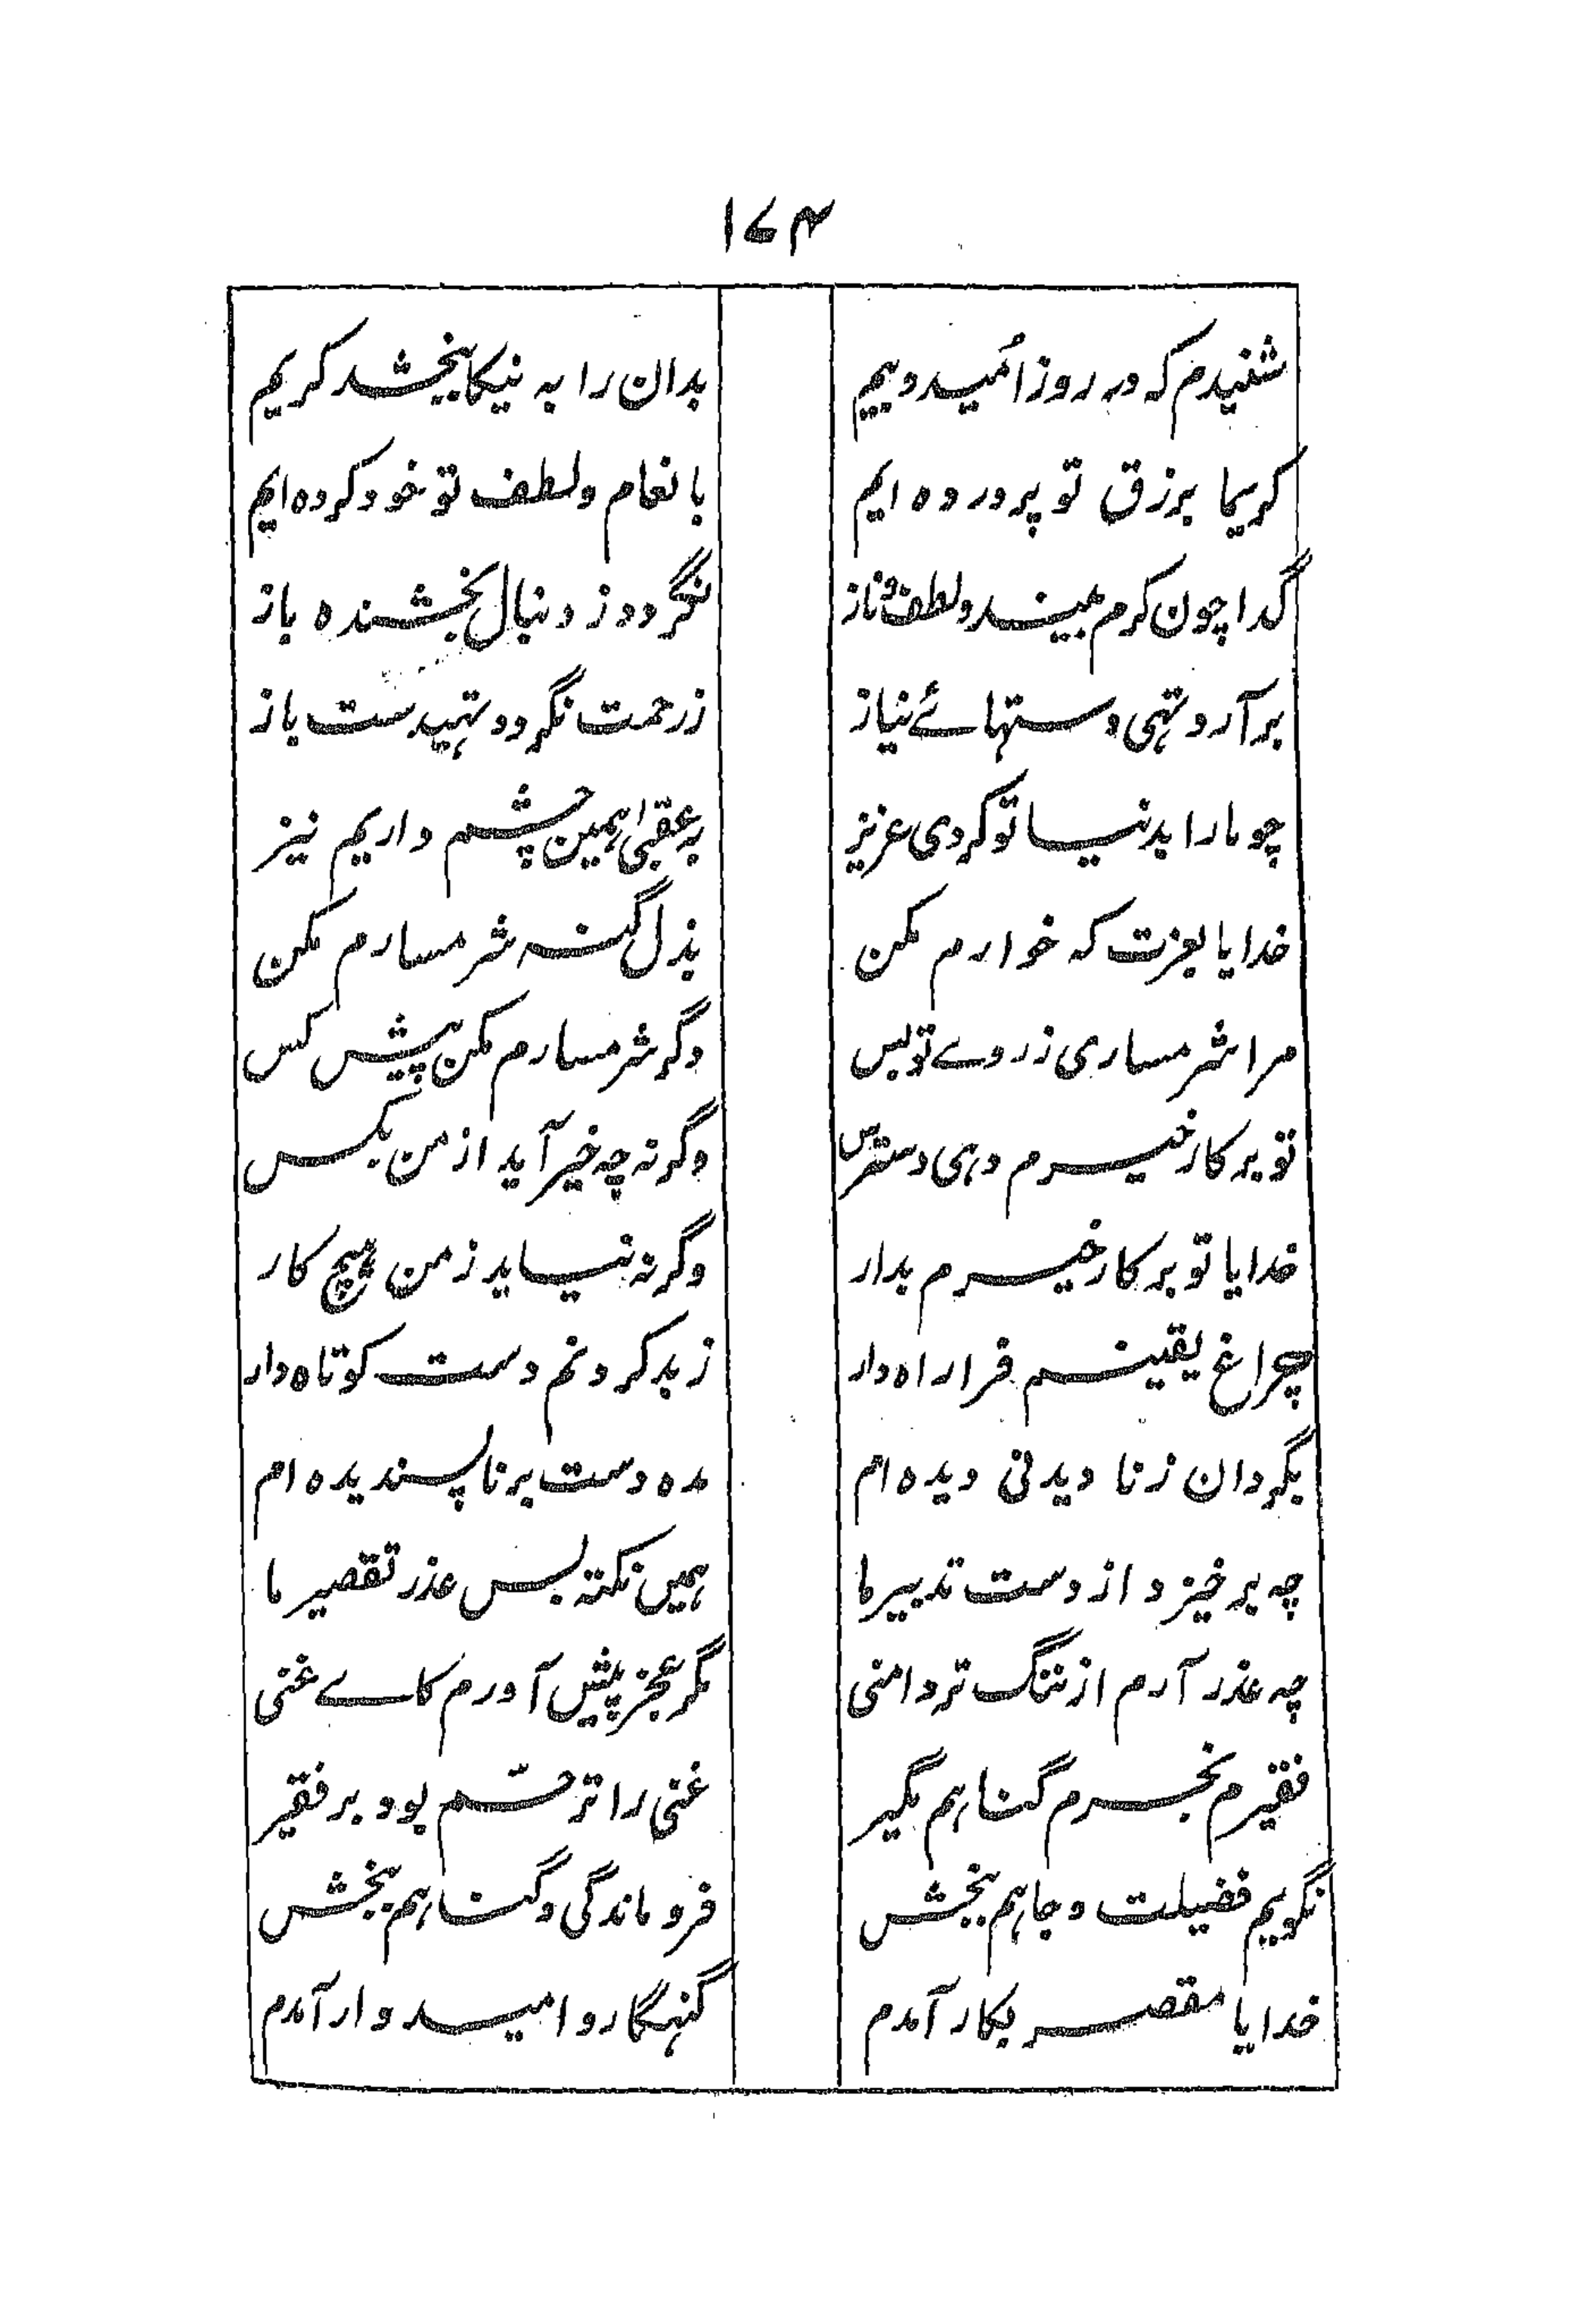 ۱۷۴
شنیدم که در روز اُمید و بیم بدان را به نیکا ببخشد کریم
کریما برزق تو پرورده ایم بانعام ولطف تو خو کرده ایم
گدا چون کرم بیند و لطف و ناز نگردد ز دنبال بخشنده باز
بر آرد تهی دستهائے نیاز زرحمت نگردد تهیدست باز
چو مارا بدنیا تو کردی عزیز به عقبیٰ همین چشم داریم نیز
خدایا بعزت که خوارم مکن بذل گنه شرمسارم مکن
مرا شرمساری ز روے تو بس دگر شرمسارم مکن پیش کس
تو بر کار خیرم دہی دسترس وگرنه چه خیر آید از من بکس
خدایا تو بر کار خیرم بدار وگرنه نیاید ز من ہیچ کار
چراغ یقینم فرا راه دار ز بد کردنم دست کوتاه دار
بگردان زنا دیدنی دیده ام مده دست برنا پسندیده ام
چه بر خیزد از دست تدبیر ما ہمیں نکته بس عذر تقصیر ما
چه عذر آرم از ننگ تردامنی مگر عجز پیش آورم کاے غنی
فقیرم بجرم گناہم مگیر غنی را ترحّم بود بر فقیر
نگویم فضیلت وجاہم ببخش فرو ماندگی وگناہم ببخش
خدایا مقصر بکار آمدم گنہگار و امیدوار آمدم